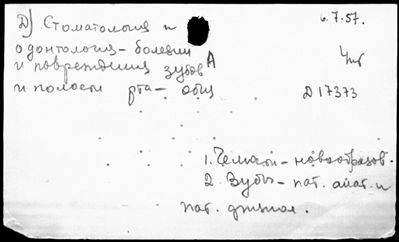 Д) Стоматология и
6.7.57.
одонтология - болезни
и повреждения зубов А
и полости рта - общ
Д17373
1. Челюсти - новообразов.
2. Зубы - пат. анат. и
пат. физиол.